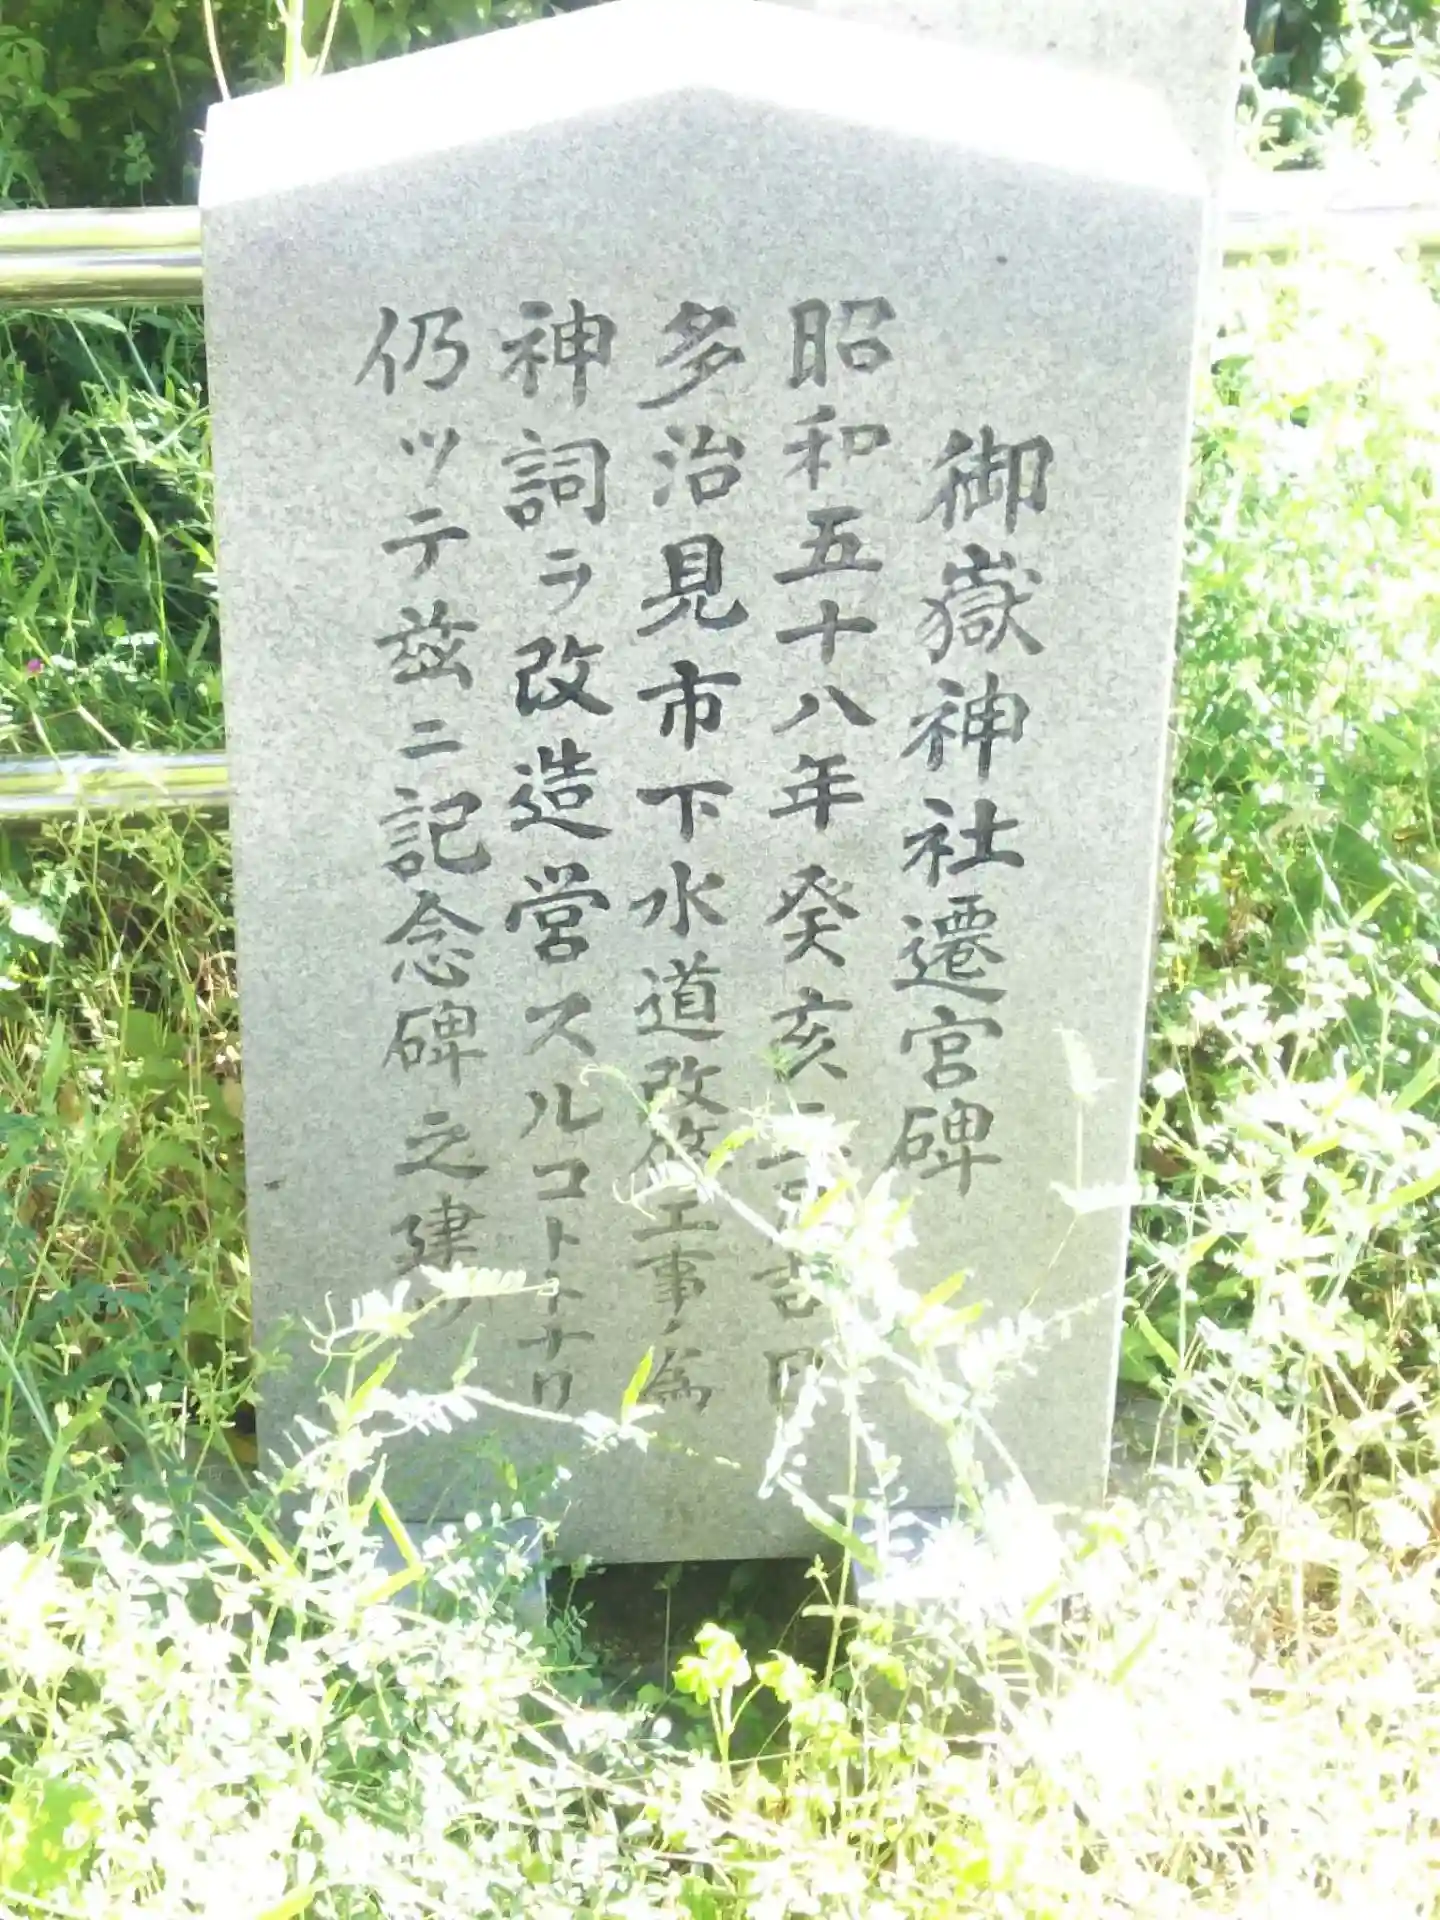 御嶽神社遷宮碑
昭和五十八年癸亥二月吉日
多治見市下水道改修工事ノ為
神詞ヲ改造営スルコトトナリ
仍ッテ茲ニ記念碑之建ツ